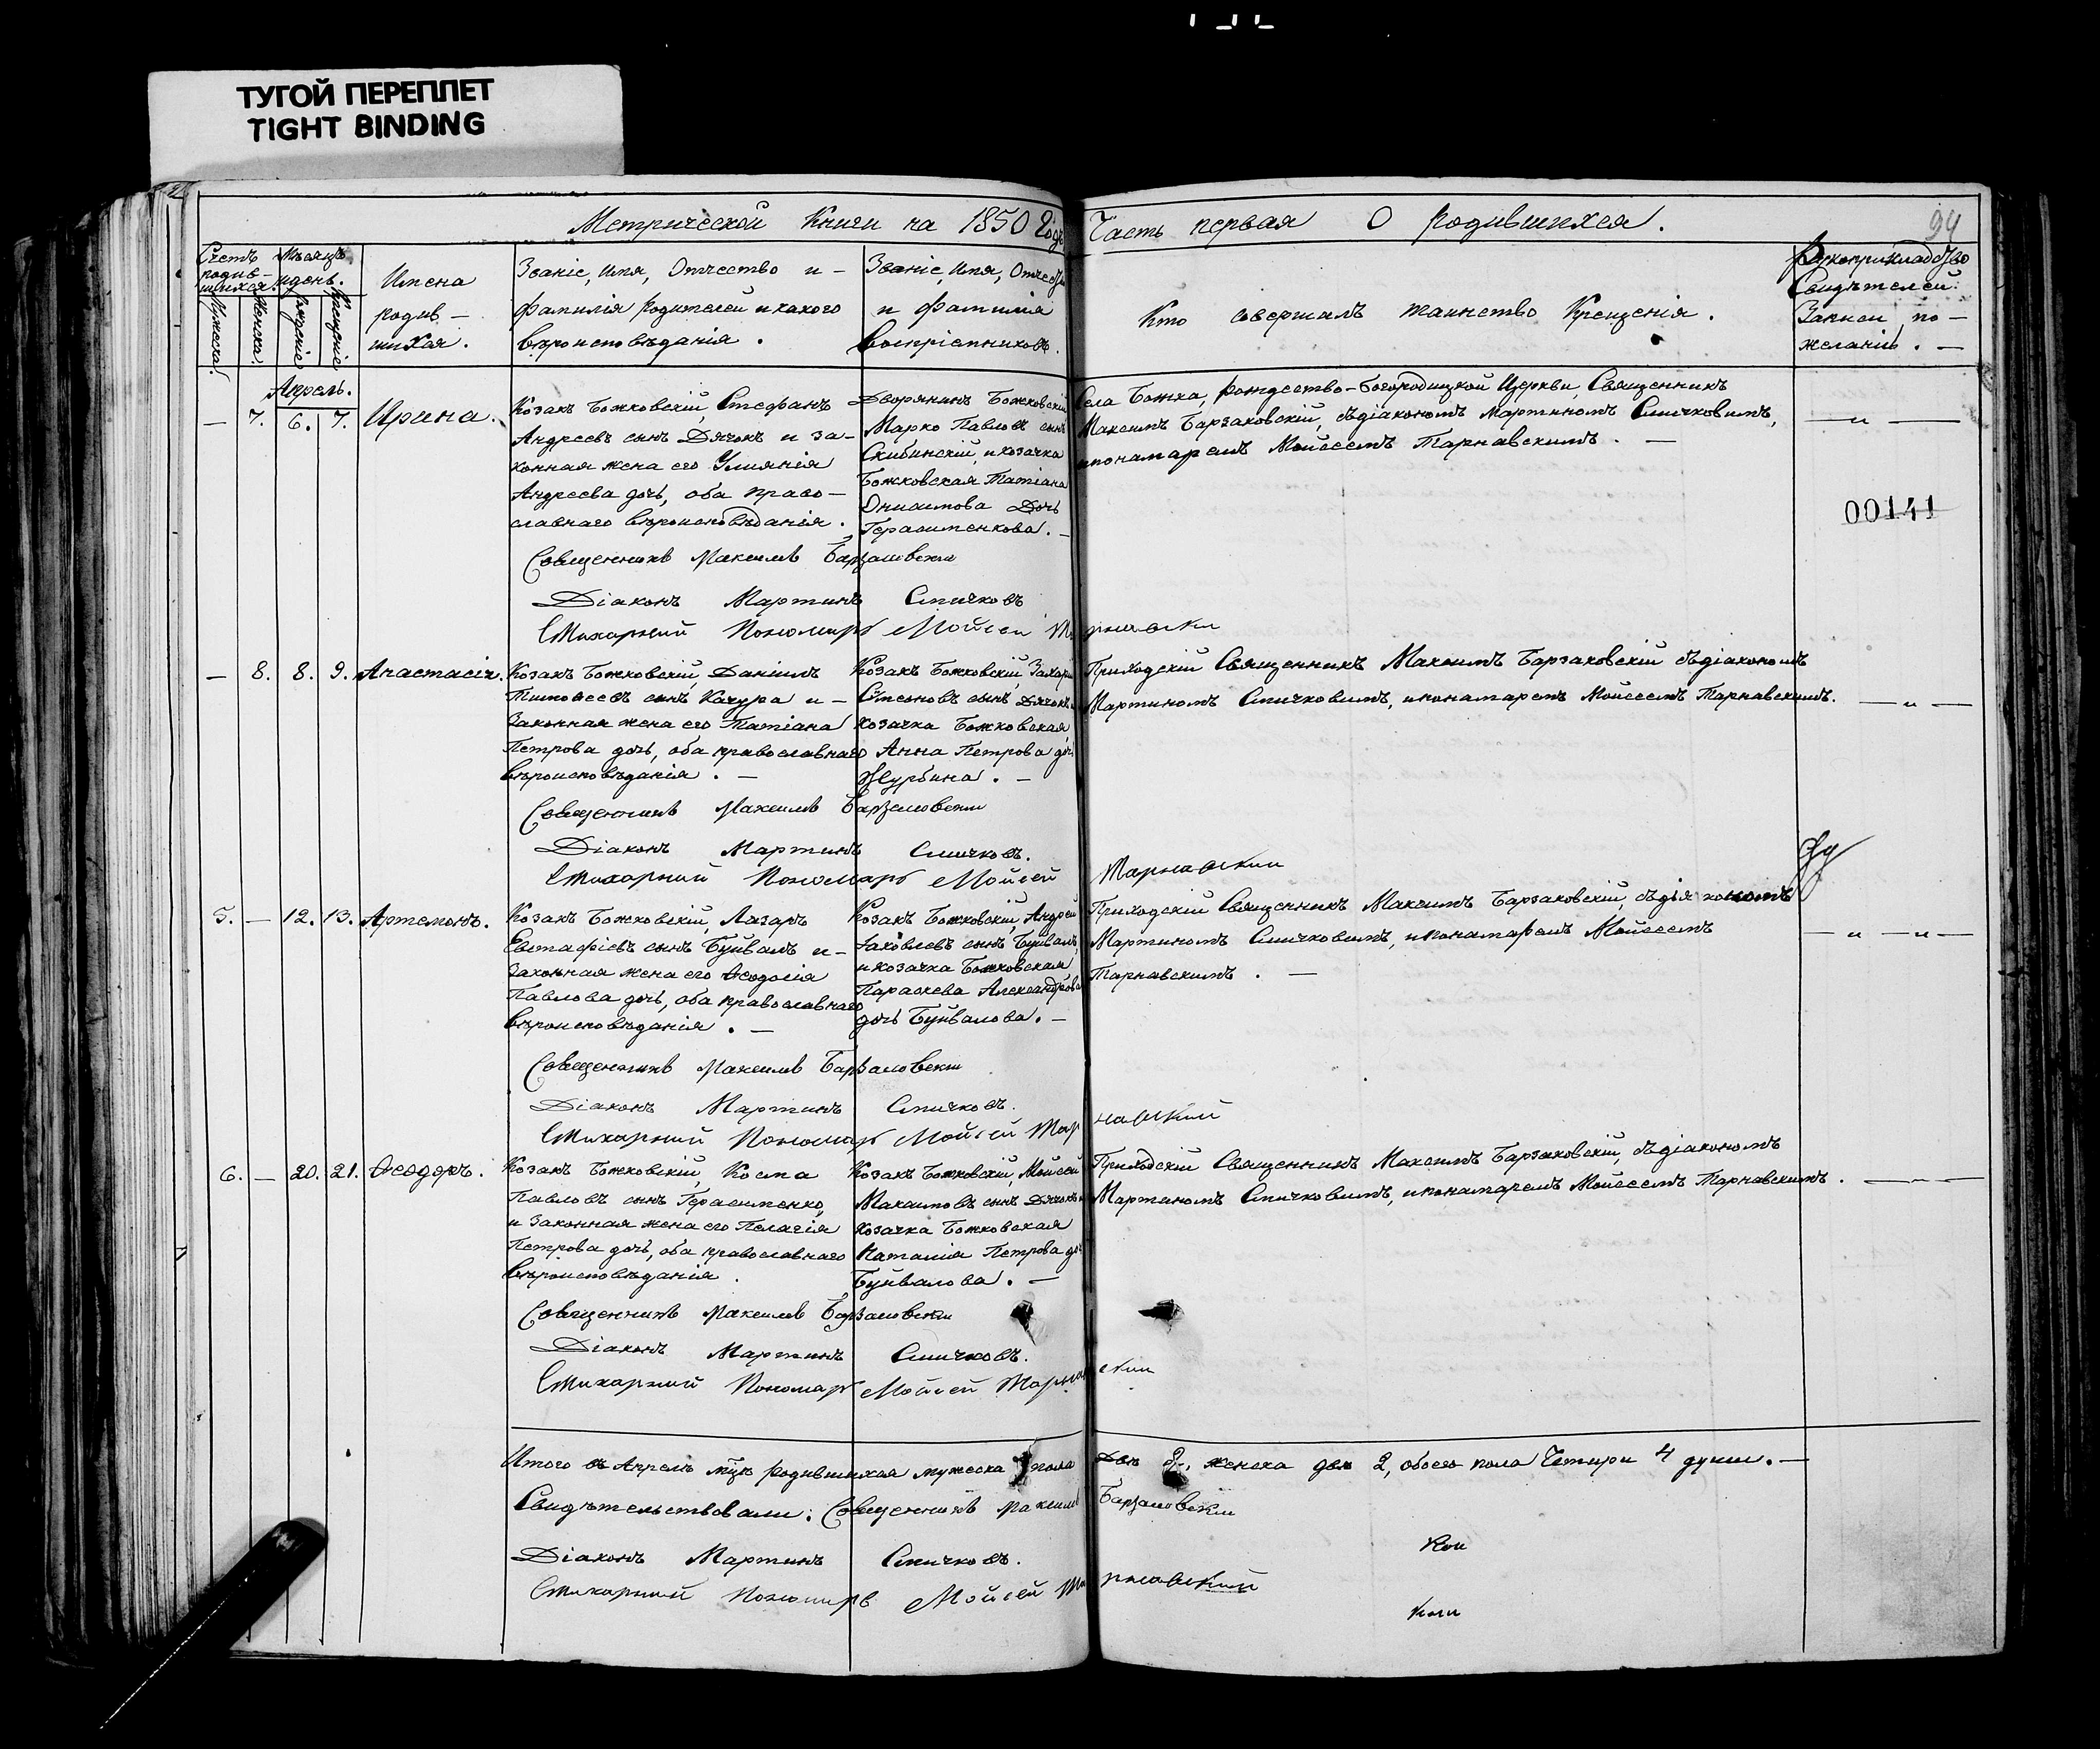 ТУГОЙ ПЕРЕПЛЕТ
TIGHT BINDING
Метрической Книги на 1850 Годъ Часть первая О родившихся.
94
Счетъ родив-шихся.
Мѣсяцъ и день.
Мужеска.
Женска.
Рожденіе
Крещеніе
Имена
родив-
шихся.
Званіе, Имя, Отчество и-
фамилія Родителей и какого
вѣроисповѣданія.
Званіе, Имя, Отчество
и фамилія
воспріемниковъ.
Кто совершалъ таинство Крещенія.
Рукоприкладство
Свидѣтелей
Записи по-
желанію. —
Апрель.
— 7. 6. 7. Ирина.
Козакъ Божковскій, Стефанъ
Андреевъ сынъ Дячокъ и за-
конная жена его Улиянія
Андреева дочь, оба право-
славнаго вѣроисповѣданія.
Дворянинъ Божковскій
Марко Павловъ сынъ
Скибинскій, и козачка
Божковская Татіана
Онисимова Дочь
Герасименкова. —
Села Божка, Рождество-Богородицкой Церкви, Священникъ
Максимъ Барзаковскій, съ діакономъ Мартиномъ Спичковымъ,
и понамаремъ Моисеемъ Тарнавскимъ. —
— „ —
00141
Священникъ Максимъ Барзаковскій
Діаконъ Мартинъ Спичковъ
Стихарный Пономарь Мойсей Тарнавский
— 8. 8. 9. Анастасія.
Козакъ Божковскій, Даніилъ
Тимофеевъ сынъ Качура и-
Законная жена его Татіана
Петрова дочь, оба православнаго
вѣроисповѣданія. —
Козакъ Божковскій, Захарій
Стефановъ сынъ Дячокъ, и
козачка Божковская
Анна Петрова дочь
Журбина. —
Приходскій Священникъ Максимъ Барзаковскій съ діакономъ
Мартиномъ Спичковымъ, и понамаремъ Моисеемъ Тарнавскимъ.
— „ —
Священникъ Максимъ Барзаковскій
Діаконъ Мартинъ Спичковъ.
Стихарный Пономарь Мойсей Тарнавский
5. — 12. 13. Артемонъ.
Козакъ Божковскій, Лазарь
Евстафіевъ сынъ Буйвалъ и-
Законная жена его Феодосія
Павлова дочь, оба православнаго
вѣроисповѣданія. —
Козакъ Божковскій, Андрей
Яковлевъ сынъ Буйвалъ,
и козачка Божковская
Параскева Александрова
дочь Буйвалова. —
Приходскій Священникъ Максимъ Барзаковскій, съ діякономъ
Мартиномъ Спичковымъ, и понамаремъ Моисеемъ
Тарнавскимъ. —
— „ — „ —
Священникъ Максимъ Барзаковскій
Діаконъ Мартинъ Спичковъ.
Стихарный Пономарь Мойсей Тарнавский
6. — 20. 21. Феодоръ.
Козакъ Божковскій, Косма
Павловъ сынъ Герасименко,
и Законная жена его Пелагія
Петрова дочь, оба православнаго
вѣроисповѣданія.
Козакъ Божковскій, Мойсей
Максимовъ сынъ Дячокъ и
козачка Божковская
Наталія Петрова дочь
Буйвалова. —
Приходскій Священникъ Максимъ Барзаковскій, съ діакономъ
Мартиномъ Спичковымъ, и понамаремъ Моисеемъ Тарнавскимъ.
— „ —
Священникъ Максимъ Барзаковскій
Діаконъ Мартинъ Спичковъ.
Стихарный Пономарь Мойсей Тарнавский
Итого въ Апрелѣ мцѣ родившихся мужеска пола два 2, женска двѣ 2, обоего пола Четыри 4 души. —
Свидѣтельствовали: Священникъ Максимъ Барзаковскій
Діаконъ Мартинъ Спичковъ.
Стихарный Пономарь Мойсей Тарнавский